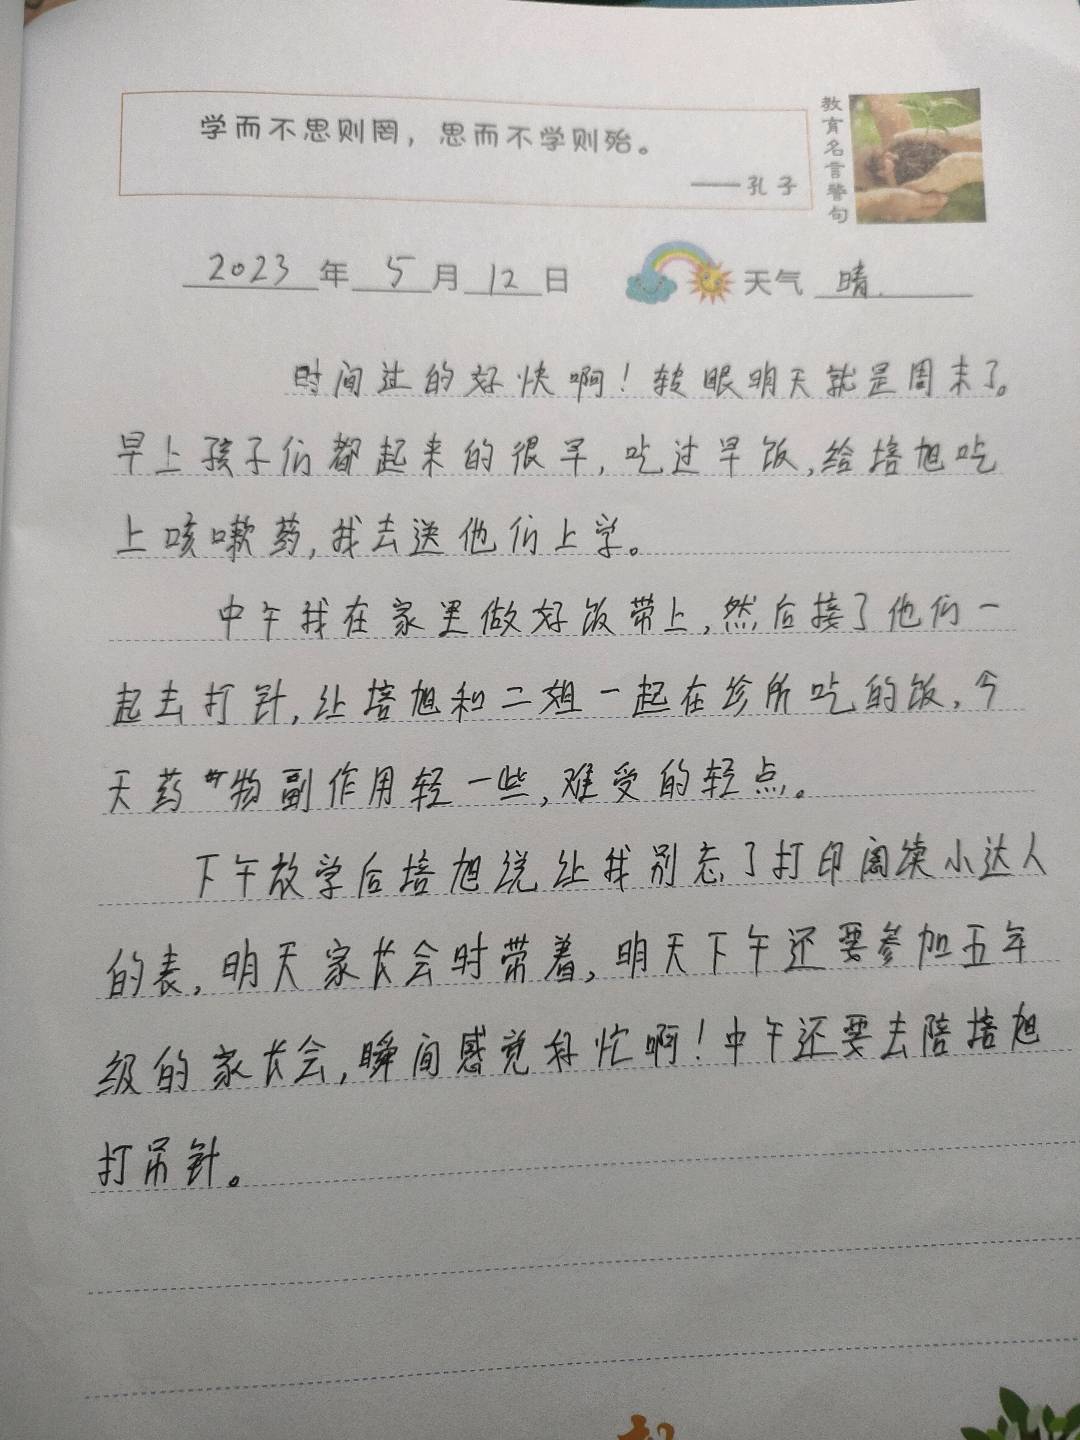 学而不思则罔，思而不学则殆。
——孔子
教育名言警句
2023年5月12日 天气 晴.
时间过的好快啊！转眼明天就是周末了。
早上孩子们都起来的很早，吃过早饭，给培旭吃
上咳嗽药，我去送他们上学。
中午我在家里做好饭带上，然后接了他们一
起去打针，让培旭和二姐一起在诊所吃的饭，今
天药物副作用轻一些，难受的轻点。
下午放学后培旭说让我别忘了打印阅读小达人
的表，明天家长会时带着，明天下午还要参加五年
级的家长会，瞬间感觉好忙啊！中午还要去陪培旭
打吊针。